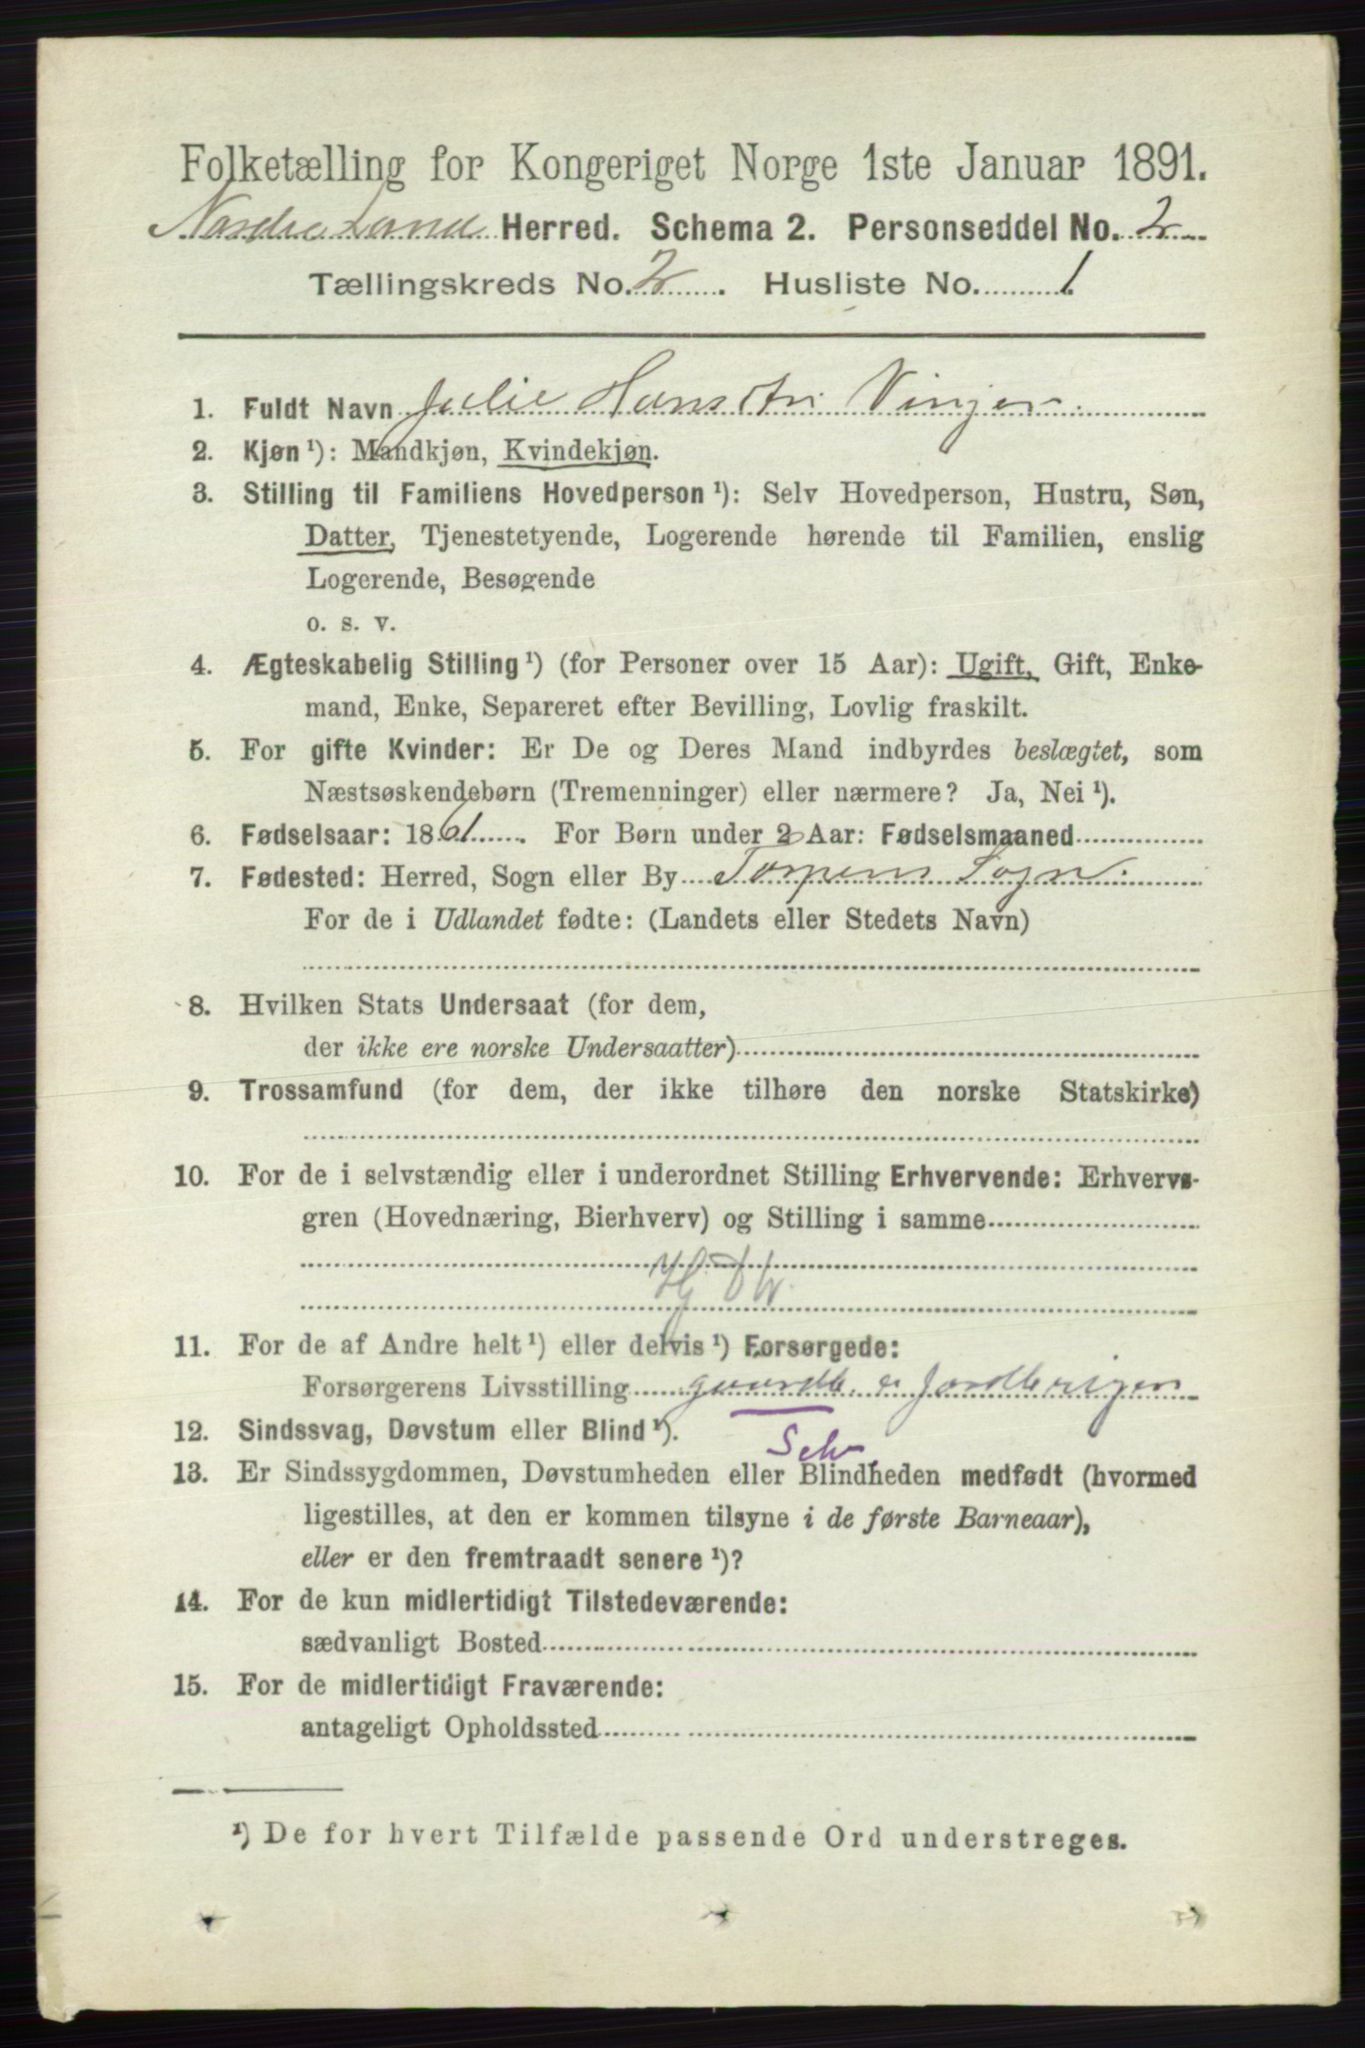 Folketælling for Kongeriget Norge 1ste Januar 1891.
Nordre Land Herred. Schema 2. Personseddel No. 2
Tællingskreds No. 2. Husliste No. 1
1. Fuldt Navn Julie Hansdtr. Vinger
2. Kjøn ¹): Mandkjøn, Kvindekjøn.
3. Stilling til Familiens Hovedperson ¹): Selv Hovedperson, Hustru, Søn,
Datter, Tjenestetyende, Logerende hørende til Familien, enslig
Logerende, Besøgende
o. s. v.
4. Ægteskabelig Stilling ¹) (for Personer over 15 Aar): Ugift, Gift, Enke-
mand, Enke, Separeret efter Bevilling, Lovlig fraskilt.
5. For gifte Kvinder: Er De og Deres Mand indbyrdes beslægtet, som
Næstsøskendebørn (Tremenninger) eller nærmere? Ja, Nei ¹).
6. Fødselsaar: 1861. For Børn under 2 Aar: Fødselsmaaned
7. Fødested: Herred, Sogn eller By Torpens Sogn.
For de i Udlandet fødte: (Landets eller Stedets Navn)
8. Hvilken Stats Undersaat (for dem,
der ikke ere norske Undersaatter)
9. Trossamfund (for dem, der ikke tilhøre den norske Statskirke)
10. For de i selvstændig eller i underordnet Stilling Erhvervende: Erhvervs-
gren (Hovednæring, Bierhverv) og Stilling i samme
11. For de af Andre helt ¹) eller delvis ¹) Forsørgede:
Forsørgerens Livsstilling gaardb.
12. Sindssvag, Døvstum eller Blind ¹).
Selv.
13. Er Sindssygdommen, Døvstumheden eller Blindheden medfødt (hvormed
ligestilles, at den er kommen tilsyne i de første Barneaar),
eller er den fremtraadt senere ¹)?
14. For de kun midlertidigt Tilstedeværende:
sædvanligt Bosted
15. For de midlertidigt Fraværende:
antageligt Opholdssted
¹) De for hvert Tilfælde passende Ord understreges.